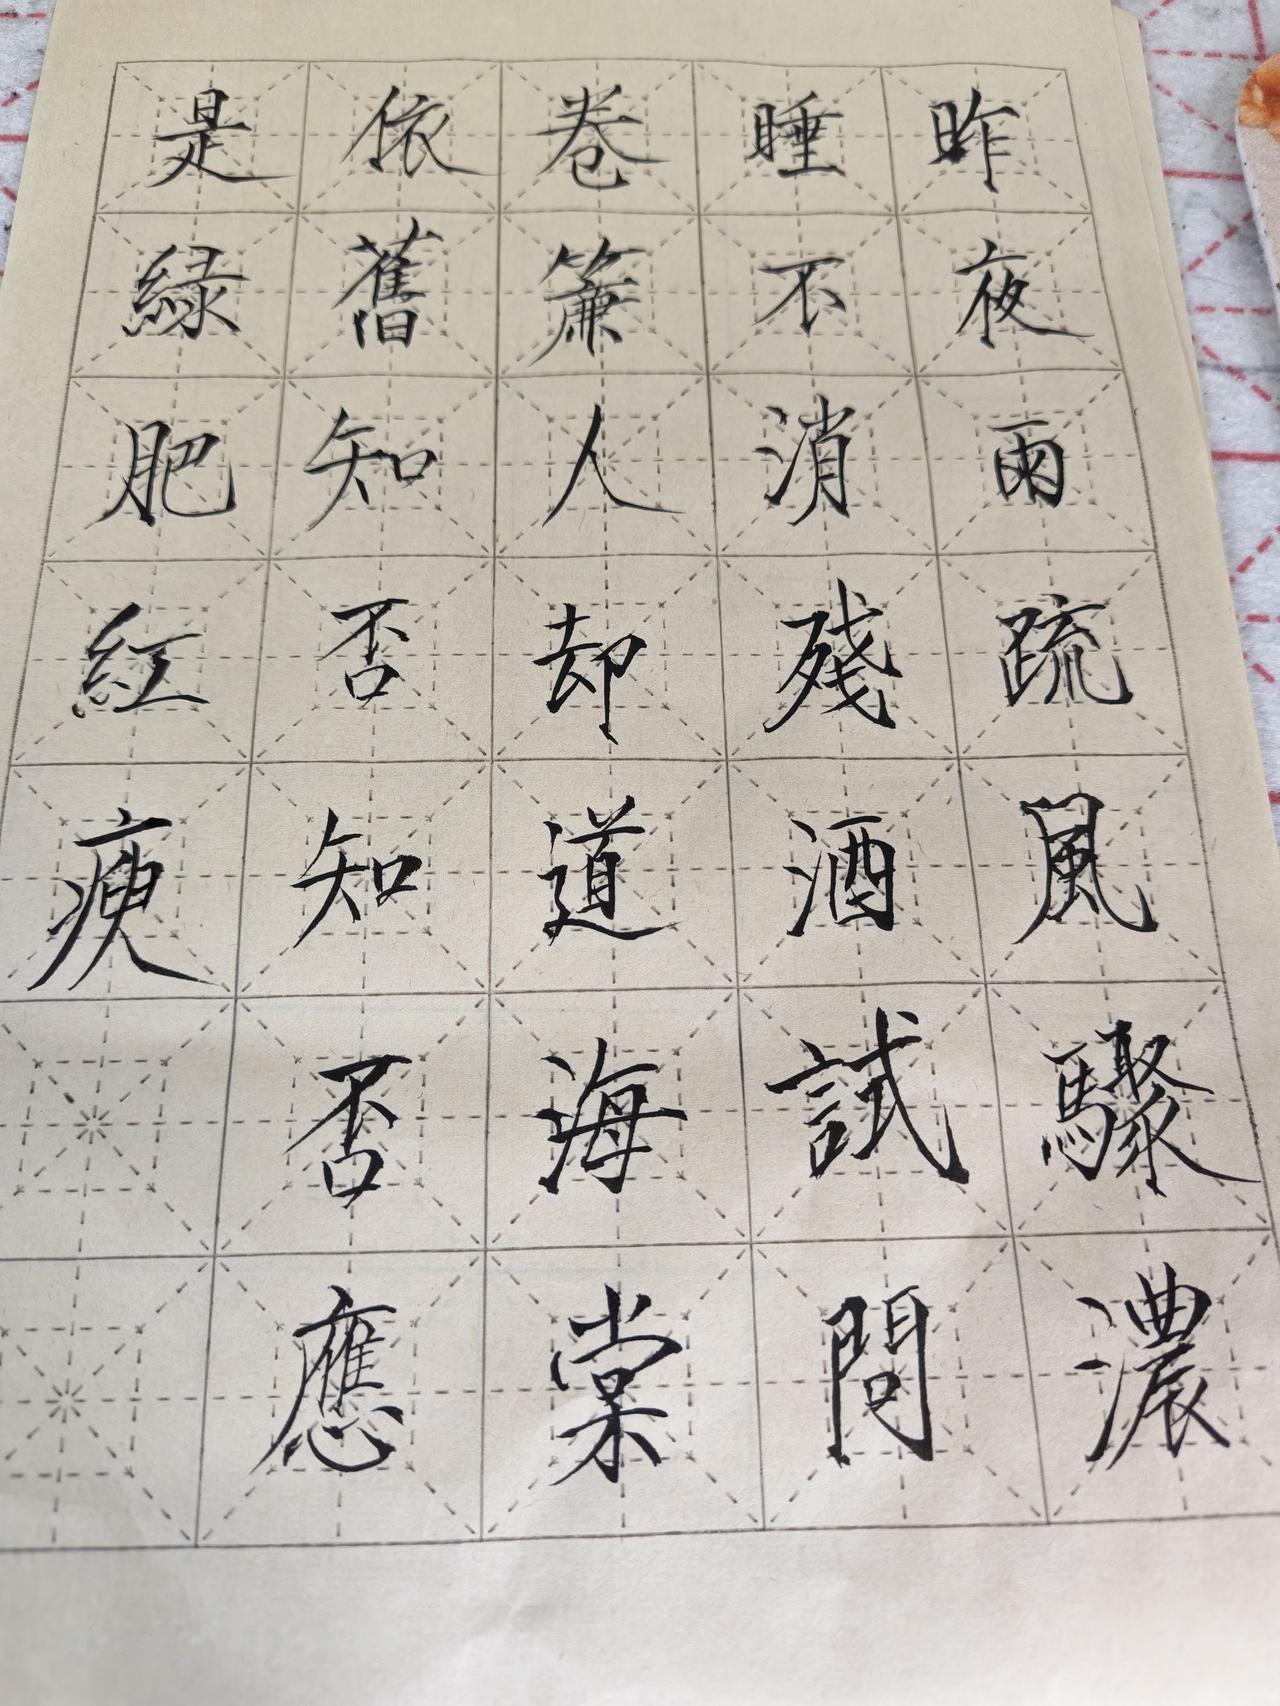 昨夜雨疏風驟濃
睡不消殘酒試問
卷簾人却道海棠
依舊知否知否應
是緑肥紅瘦